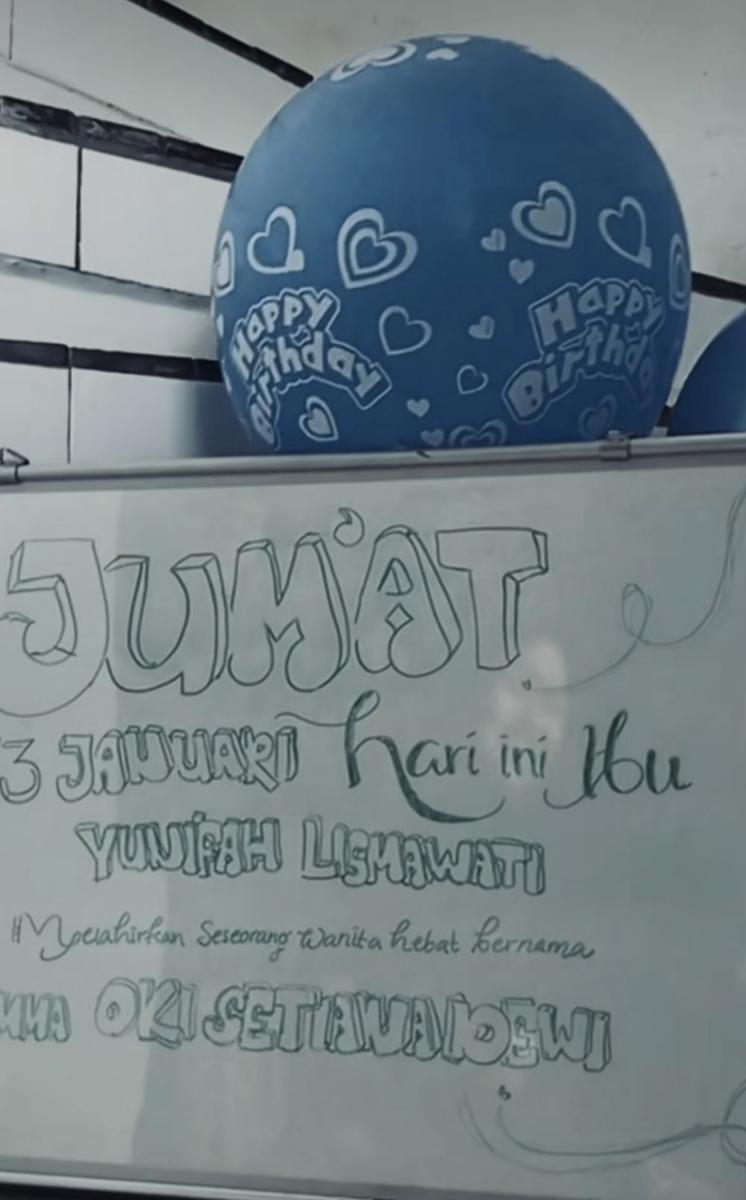 Happy Birthday
Happy Birthda
JUM'AT
3 JANUARI hari ini Ibu
YUNIFAH LISMAWATI
#Melahirkan Seseorang wanita hebat bernama
MMA OKI SETIANA DEWI